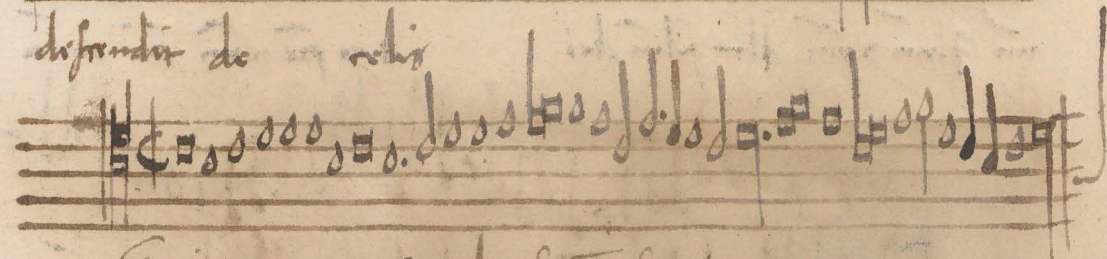 descendit de celis